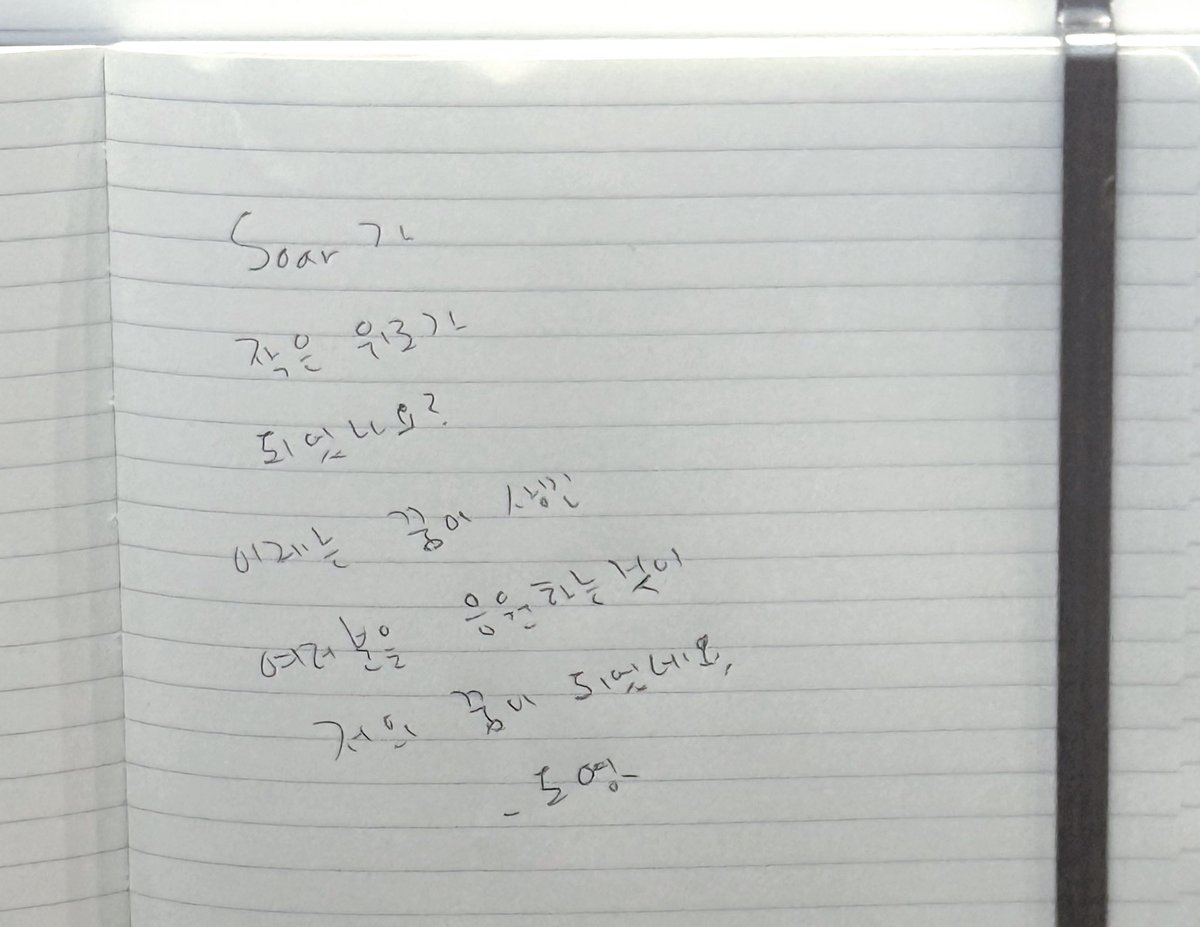 Soar가
작은 위로가
되었나요?
이제는 꿈이 생긴
여러분을 응원하는 것이
저의 꿈이 되었네요,
- 도영 -